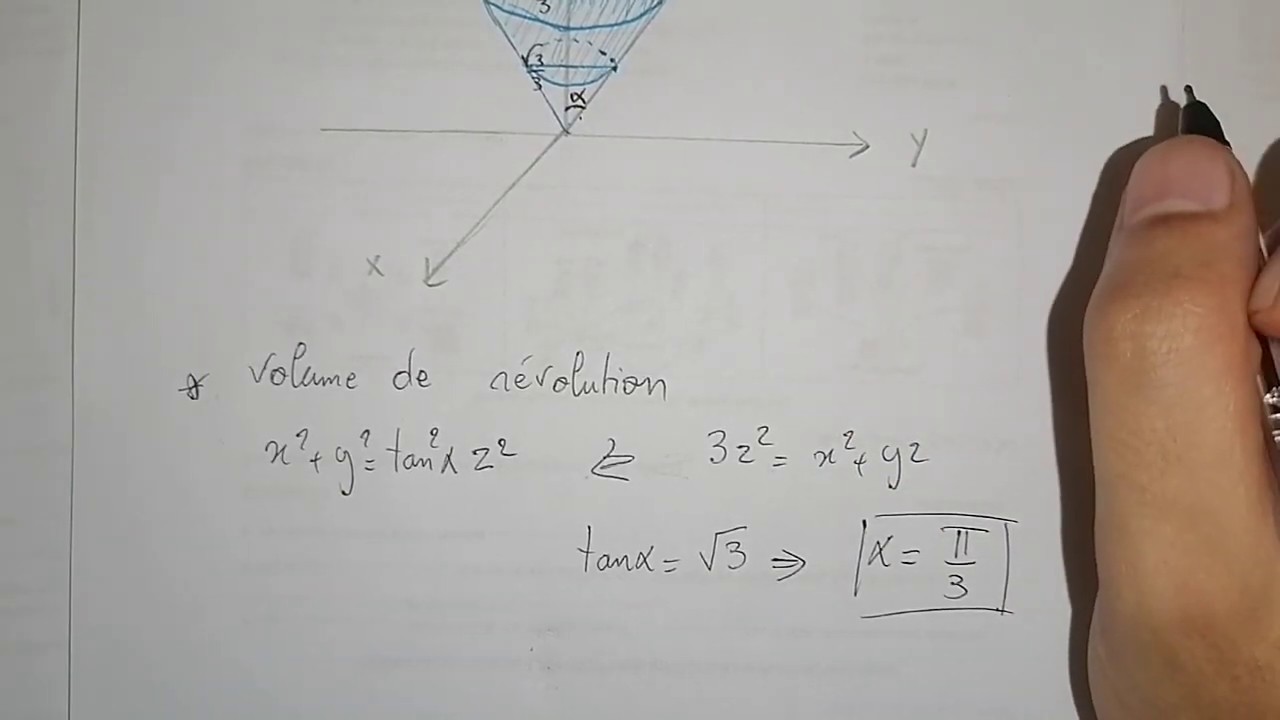 3
√3/3
α
y
x
* volume de révolution
x² + y² = tan²α z² & 3z² = x² + y2
tanα = √3 ⇒ α = π/3